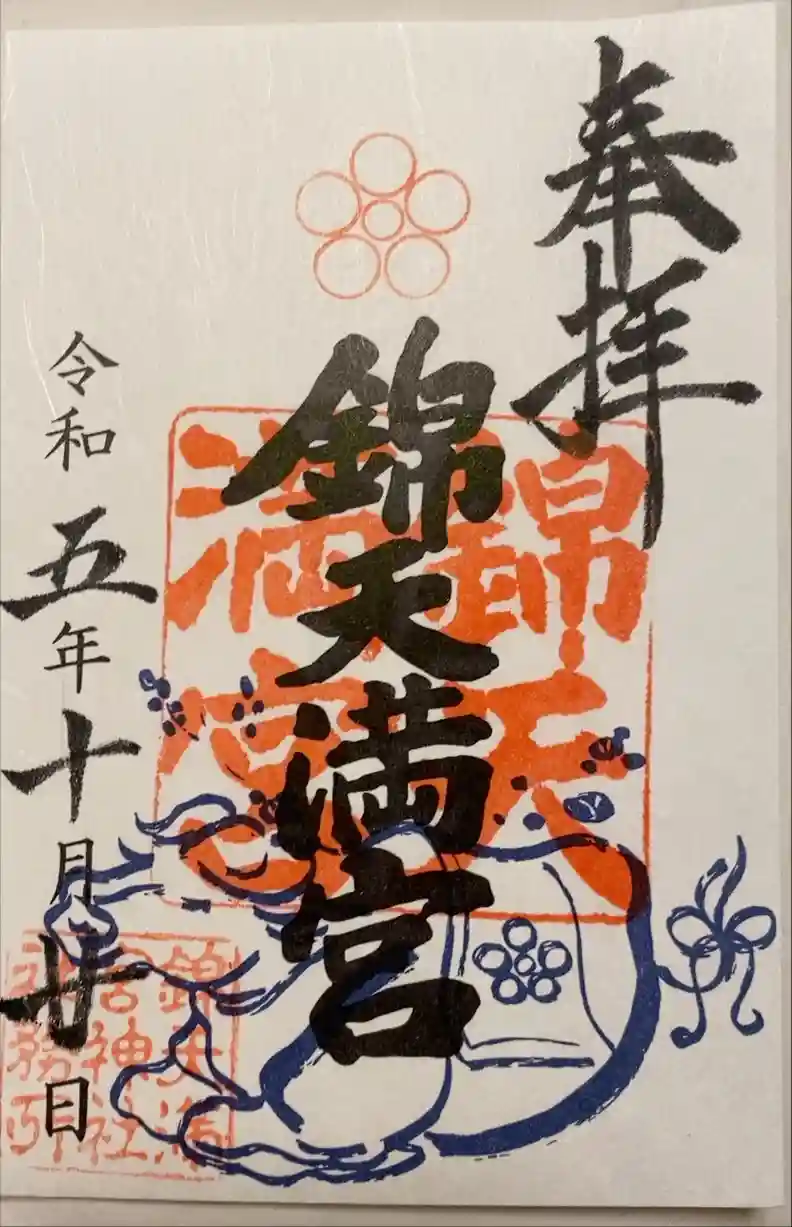 奉拝
錦天満宮
錦天
満宮
令和五年十月廿日
錦天満
宮神社
務所